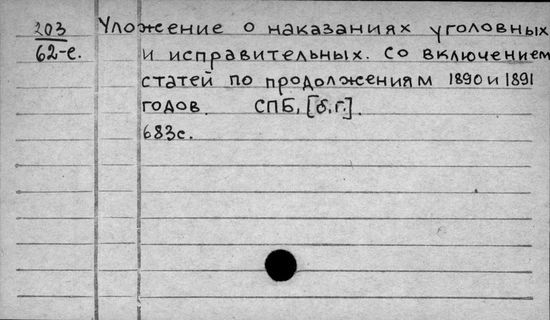 203 Уложение о наказаниях уголовных
62-е. и исправительных. Со включением
статей по продолжениям 1890 и 1891
годов. СПБ, [б.г.].
683с.